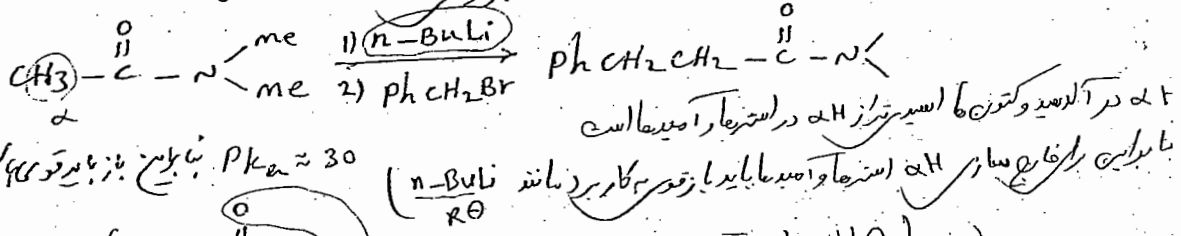 CH3 – C(=O) – N(me)(me) 1) n–BuLi 2) PhCH2Br → Ph CH2 CH2 – C(=O) – N<
α
αH در آلدهید و کتون ها اسیدی تر از αH در استرها و آمیدها است
بنابراین برای خارج سازی αH استرها و آمیدها باید باز قوی به کار برد مانند n–BuLi
R⊖
pKa ≈ 30 بنابراین باز باید قوی
O